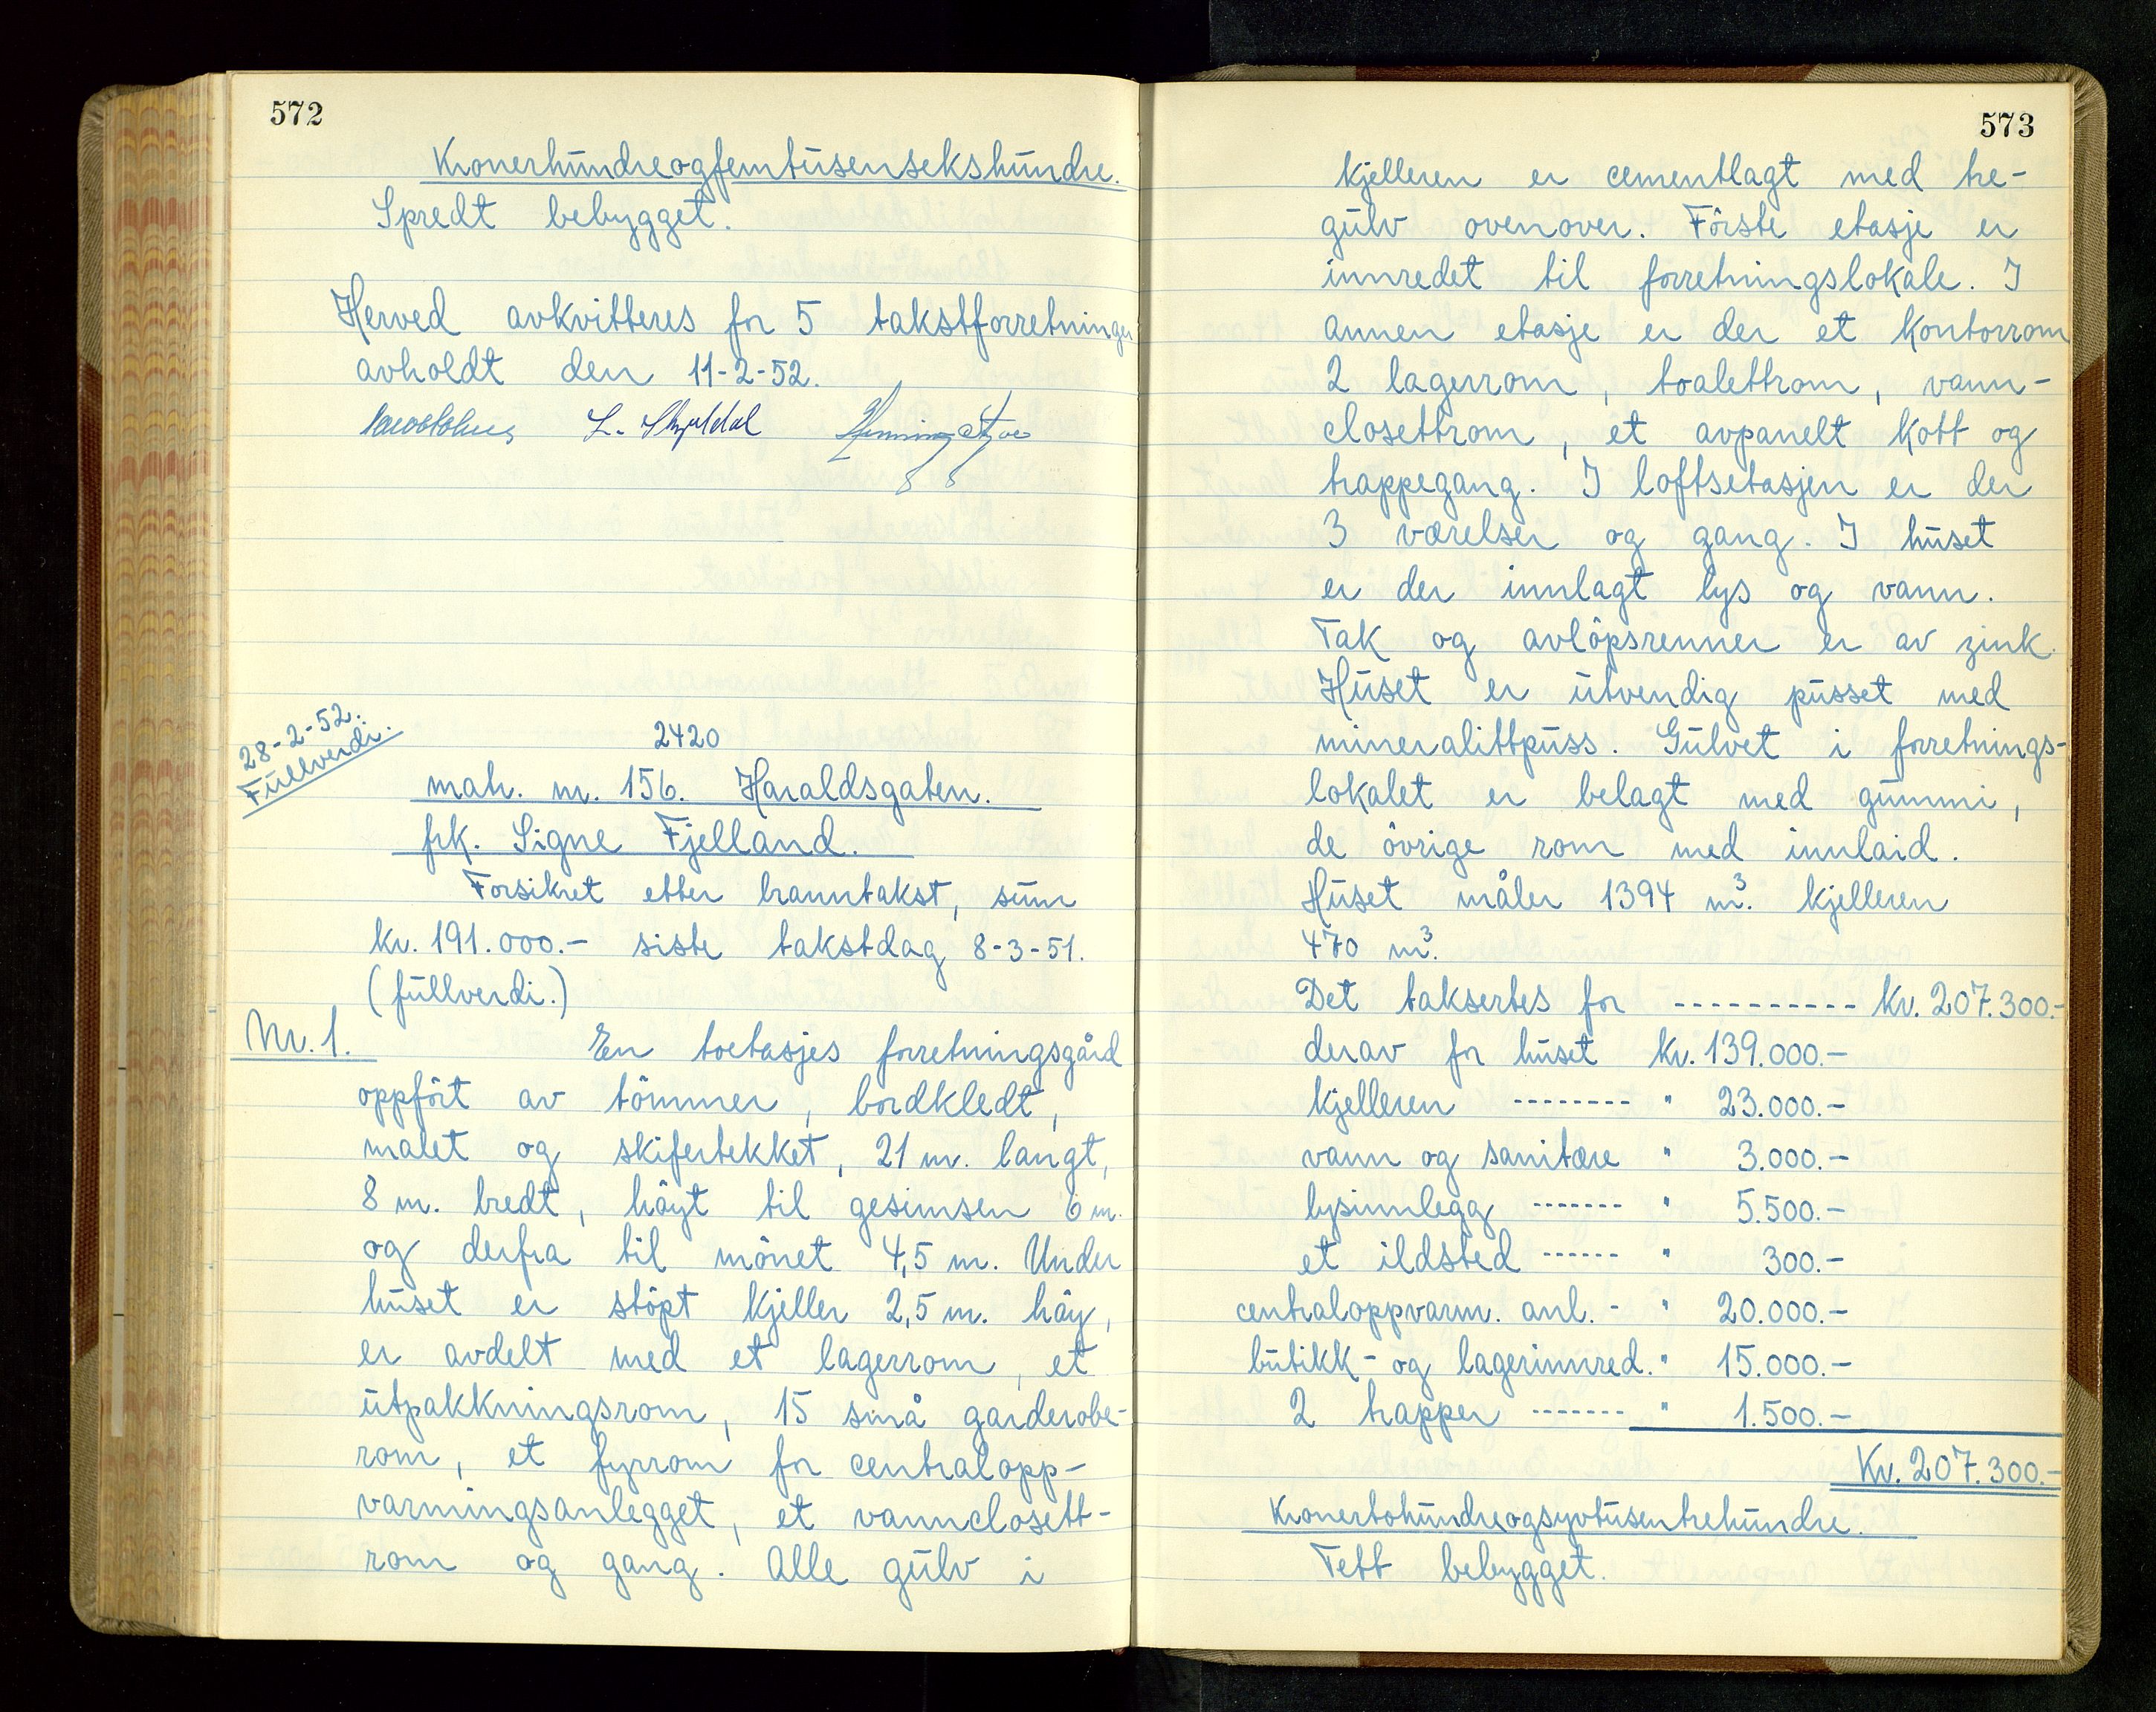 572
Kronerhundreogfemtusensekshundre.
Spredt bebygget.
Herved avkvitteres for 5 takstforretninger
avholdt den 11-2-52.
L. Skjoldal Henning
28-2-52.
Fullverdi.
2420
matr. nr. 156. Haraldsgaten.
frk. Signe Fjelland.
Forsikret etter branntakst, sum
kr. 191.000.- siste takstdag 8-3-51.
(fullverdi.)
Nr. 1. En toetasjes forretningsgård
oppført av tømmer, bordkledt,
malet og skifertekket, 21 m. langt,
8 m. bredt, høyt til gesimsen 6 m.
og derfra til mønet 4,5 m. Under
huset er støpt kjeller 2,5 m. høy,
er avdelt med et lagerrom, et
utpakkningsrom, 15 små garderobe-
rom, et fyrrom for centralopp-
varmingsanlegget, et vannclosett-
rom og gang. Alle gulv i
573
kjelleren er cementlagt med tre-
gulv ovenover. Første etasje er
innredet til forretningslokale. I
annen etasje er der et kontorrom
2 lagerrom, toalettrom, vann-
closettrom, et avpanelt kott og
trappegang. I loftsetasjen er der
3 værelser og gang. I huset
er der innlagt lys og vann.
Tak og avløpsrenner er av zink.
Huset er utvendig pusset med
mineralittpuss. Gulvet i forretnings-
lokalet er belagt med gummi,
de øvrige rom med innlaid.
Huset måler 1394 m³. kjelleren
470 m³.
Det taksertes for ---------- kr. 207.300.-
derav for huset kr. 139.000.-
kjelleren -------- " 23.000.-
vann og sanitære " 3.000.-
lysinnlegg ------- " 5.500.-
et ildsted ------ " 300.-
centraloppvarm. anl. - " 20.000.-
butikk- og lagerinnred. " 15.000.-
2 trapper ------- " 1.500.-
Kr. 207.300.-
Kronertohundreogsyvtusentrehundre.
Tett bebygget.